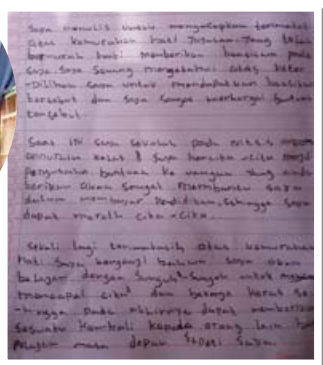 Saya menulis untuk mengucapkan terimakasih
atas kemurahan hati yang telah
bermurah hati memberikan bantuan pada
saya. Saya senang mengetahui atas keter-
-pilihan saya untuk mendapatkan bantuan
tersebut dan saya sangat menghargai bantuan
tersebut.
Saat ini saya sekolah pada
kelas 8 saya bercita-cita
bantuan ke uangan yang anda
berikan akan sangat membantu saya
dalam membayar pendidikan, sehingga saya
dapat meraih cita-cita.
Sekali lagi terimakasih atas kemurahan
hati. Saya berjanji bahwa saya akan
belajar dengan sungguh²
mencapai cita² dan bekerja keras se-
-hingga pada akhirnya dapat memberikan
sesuatu kembali kepada orang lain
pelajar masa depan seperti saya.